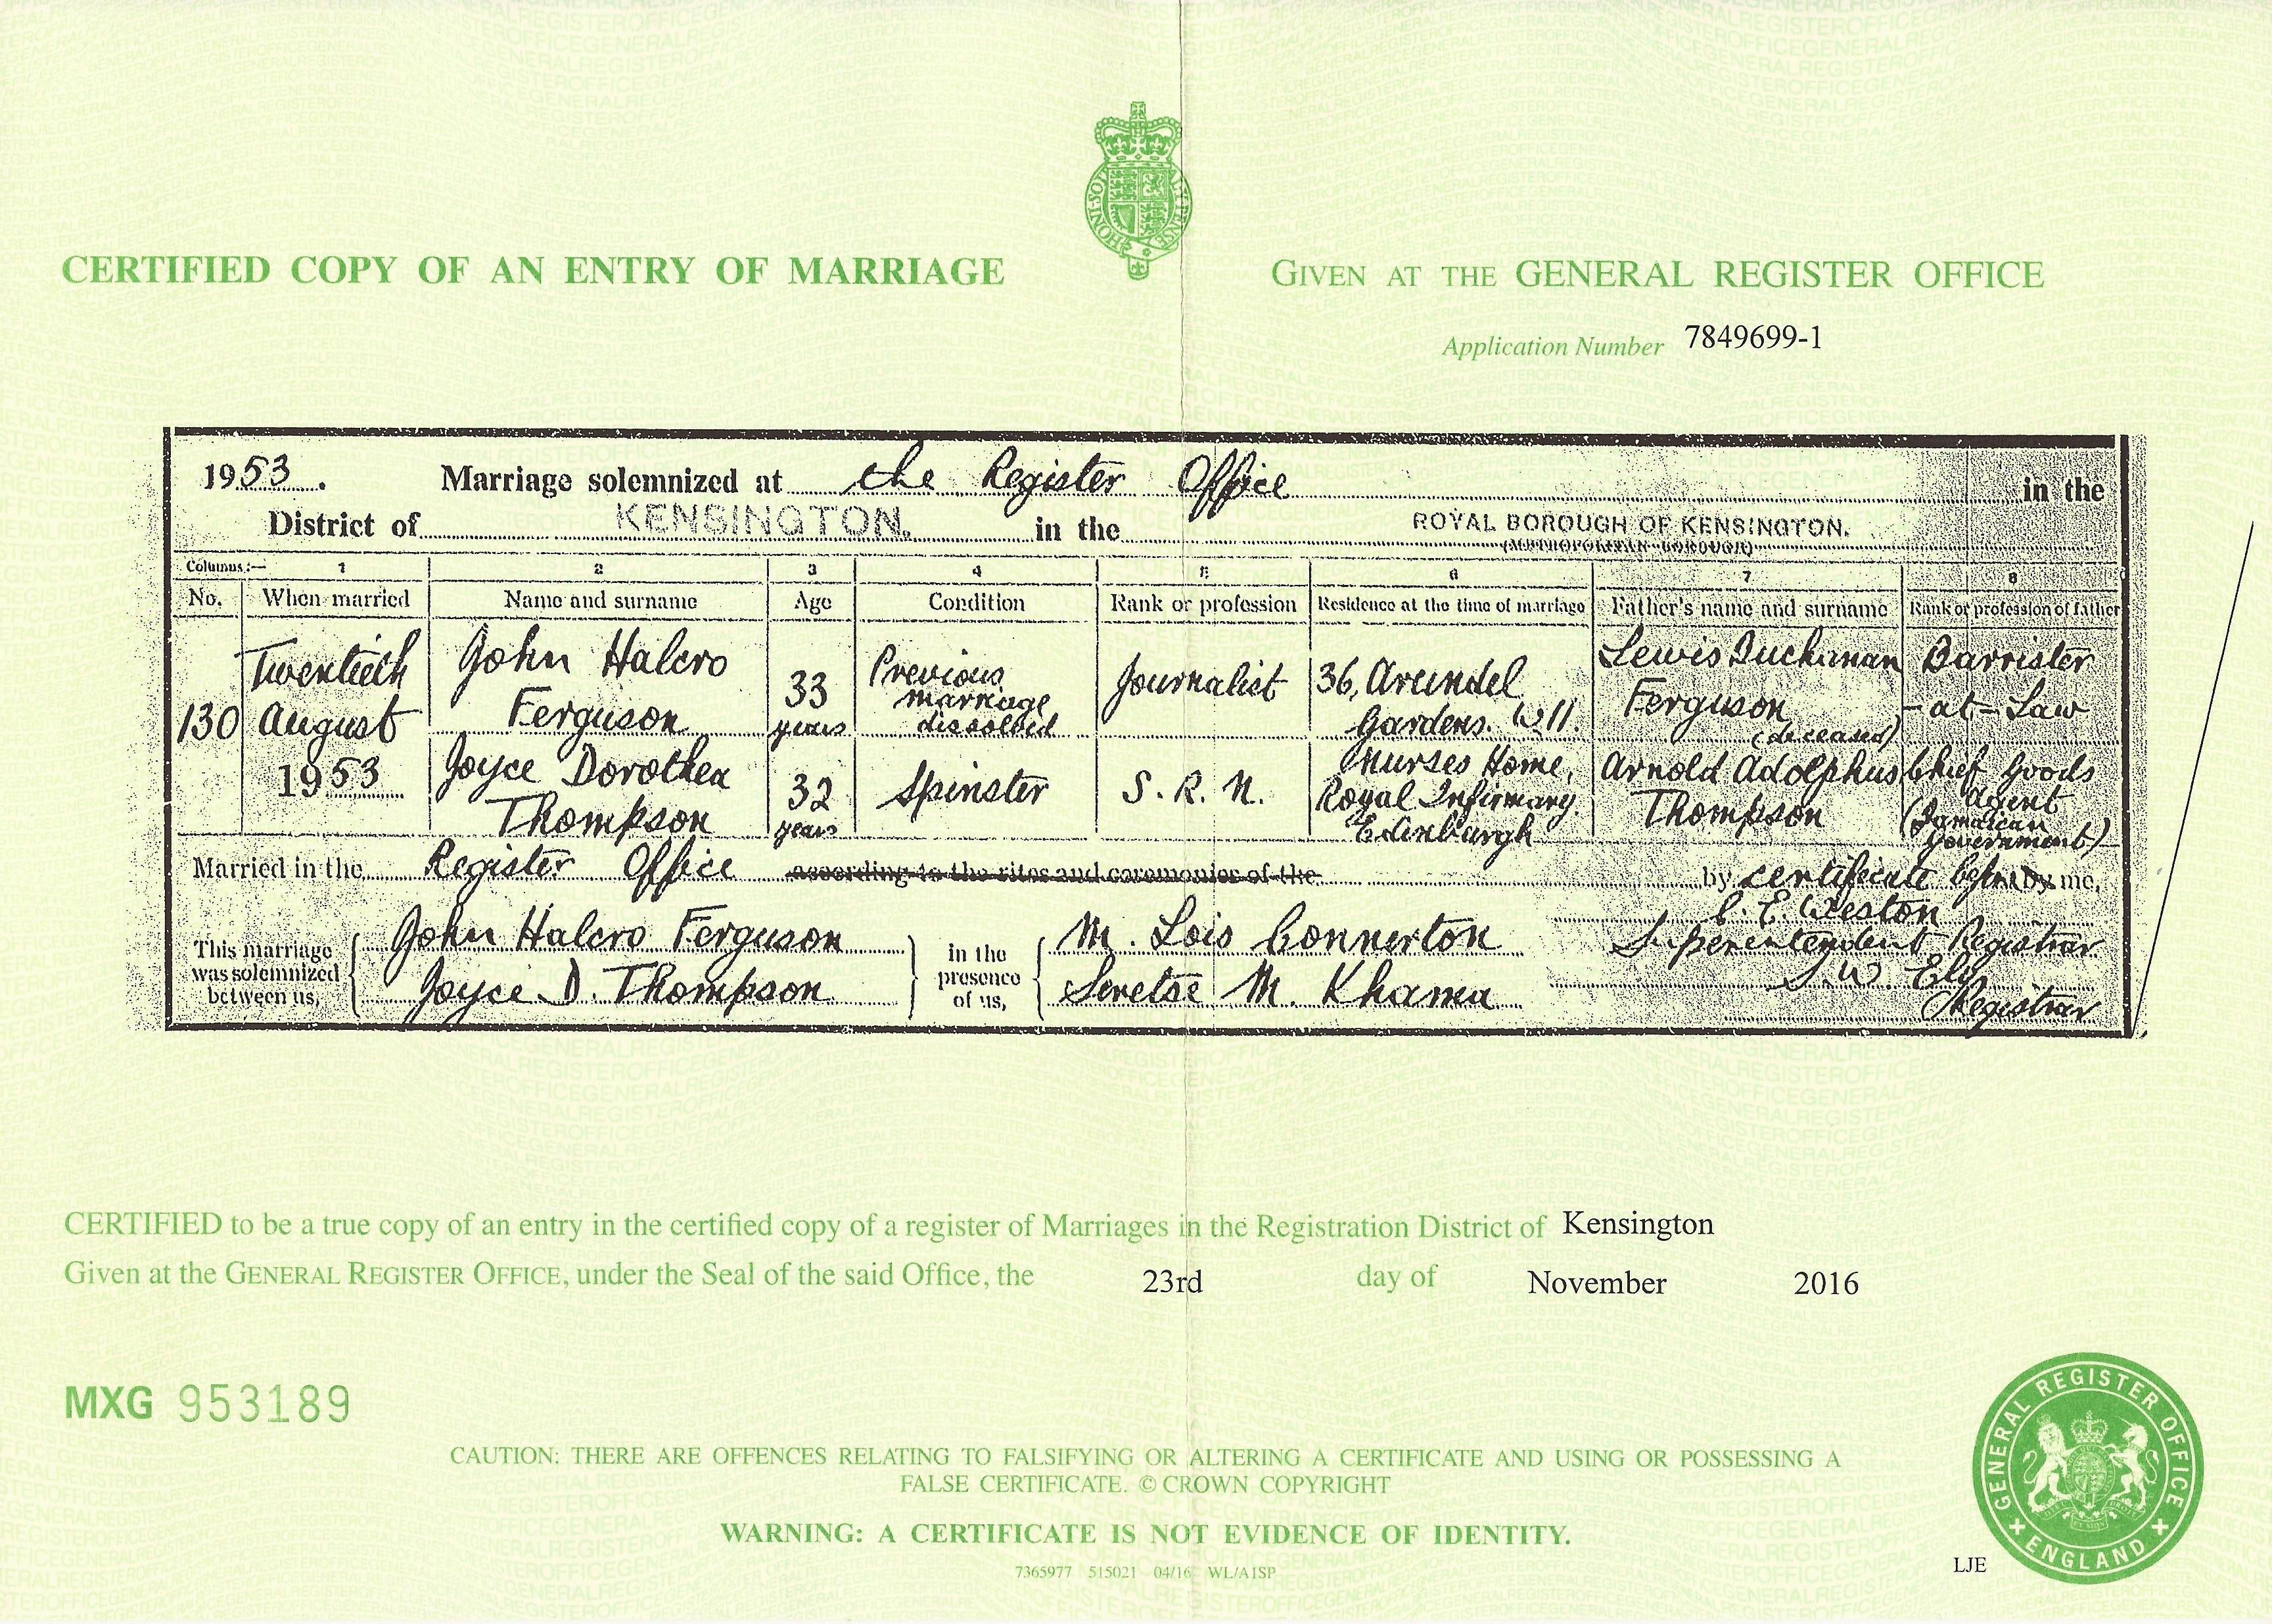 CERTIFIED COPY OF AN ENTRY OF MARRIAGE
GIVEN AT THE GENERAL REGISTER OFFICE
Application Number 7849699-1
1953. Marriage solemnized at the Register Office in the
District of KENSINGTON. in the ROYAL BOROUGH OF KENSINGTON.
(METROPOLITAN BOROUGH)
Columns:— 1 2 3 4 5 6 7 8
No. When married Name and surname Age Condition Rank or profession Residence at the time of marriage Father's name and surname Rank or profession of father
130 Twentieth August 1953
John Halcro Ferguson 33 years Previous marriage dissolved Journalist 36, Arundel Gardens. W11. Lewis Buchanan Ferguson (deceased) Barrister -at-Law
Joyce Dorothea Thompson 32 years Spinster S.R.N. Nurses Home, Royal Infirmary, Edinburgh Arnold Adolphus Thompson Chief Goods Agent (Jamaican Government)
Married in the Register Office according to the rites and ceremonies of the by certificate before by me,
This marriage was solemnized between us, John Halcro Ferguson
Joyce D. Thompson
in the presence of us, M. Lois Connerton
Seretse M. Khama
C. E. Weston
Superintendent Registrar
J. W. Ely
Registrar
CERTIFIED to be a true copy of an entry in the certified copy of a register of Marriages in the Registration District of Kensington
Given at the GENERAL REGISTER OFFICE, under the Seal of the said Office, the 23rd day of November 2016
MXG 953189
CAUTION: THERE ARE OFFENCES RELATING TO FALSIFYING OR ALTERING A CERTIFICATE AND USING OR POSSESSING A
FALSE CERTIFICATE. © CROWN COPYRIGHT
WARNING: A CERTIFICATE IS NOT EVIDENCE OF IDENTITY.
7365977 515021 04/16 WL/A1SP
LJE
GENERAL REGISTER OFFICE
ENGLAND